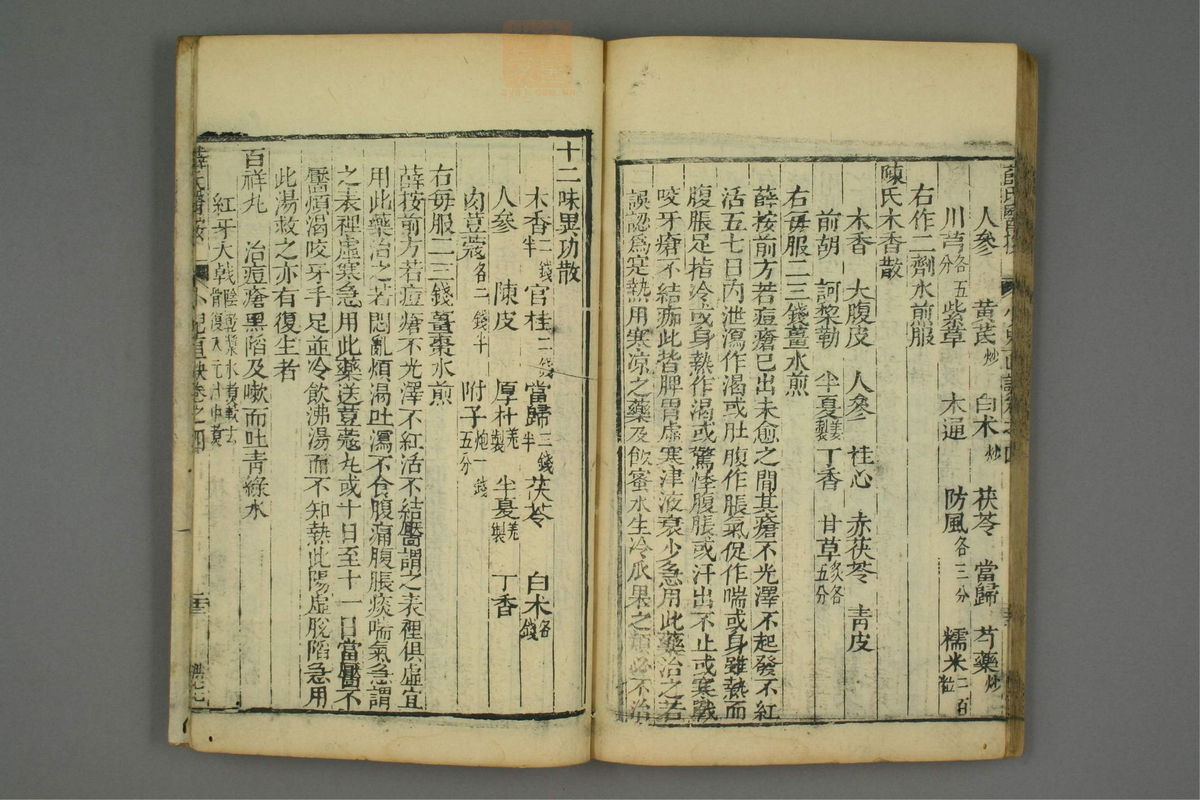 人參 黃芪炒 白朮炒 茯苓 當歸 芍藥炒
川芎各五分 紫草 木通 防風各三分 糯米二百粒
右作二劑水煎服
陳氏木香散
木香 大腹皮 人參 桂心 赤茯苓 青皮
前胡 訶棃勒 半夏姜製 丁香 甘草炙各五分
右每服二三錢薑水煎
薛按前方若痘瘡已出未愈之間其瘡不光澤不起發不紅
活五七日內泄瀉作渴或肚腹作脹氣促作喘或身雖熱而
腹脹足指冷或身熱作渴或驚悸腹脹或汗出不止或寒戰
咬牙瘡不結痂此皆脾胃虛寒津液衰少急用此藥治之若
誤認為寔熱用寒凉之藥及飲蜜水生冷瓜果之類必不治
十二味異功散
木香二錢半 官桂二錢 當歸三錢半 茯苓 白朮各錢
人參 陳皮 厚朴羌製 半夏羌製 丁香
肉荳蔻各二錢半 附子炮一錢五分
右每服二三錢薑棗水煎
薛按前方若痘瘡不光澤不紅活不結靨謂之表裡俱虛宜
用此藥治之若悶亂煩渴吐瀉不食腹痛腹脹痰喘氣急謂
之表裡虛寒急用此藥送荳蔻丸或十日至十一日當靨不
靨煩渴咬牙手足並冷飲沸湯而不知熱此陽虛脫陷急用
此湯救之亦有復生者
百祥丸 治痘瘡黑陷及嗽而吐青綠水
紅牙大戟陰乾漿水煮軟去骨復入元汁中煮
薛氏醫按 小兒直訣卷之四